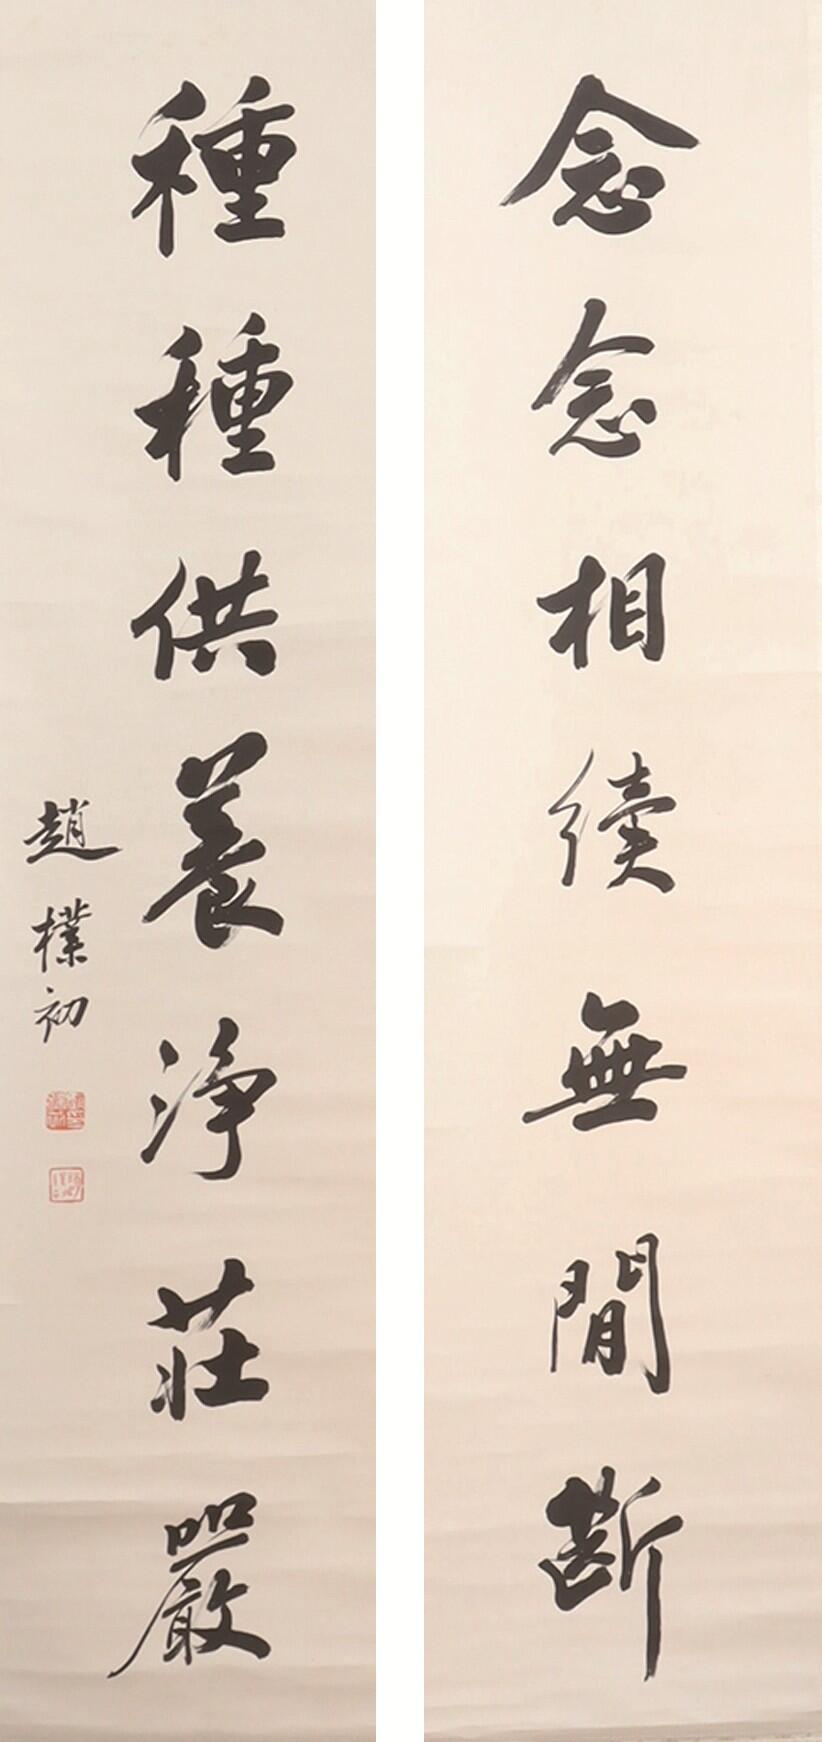 念念相續無間斷
種種供養淨莊嚴
趙樸初